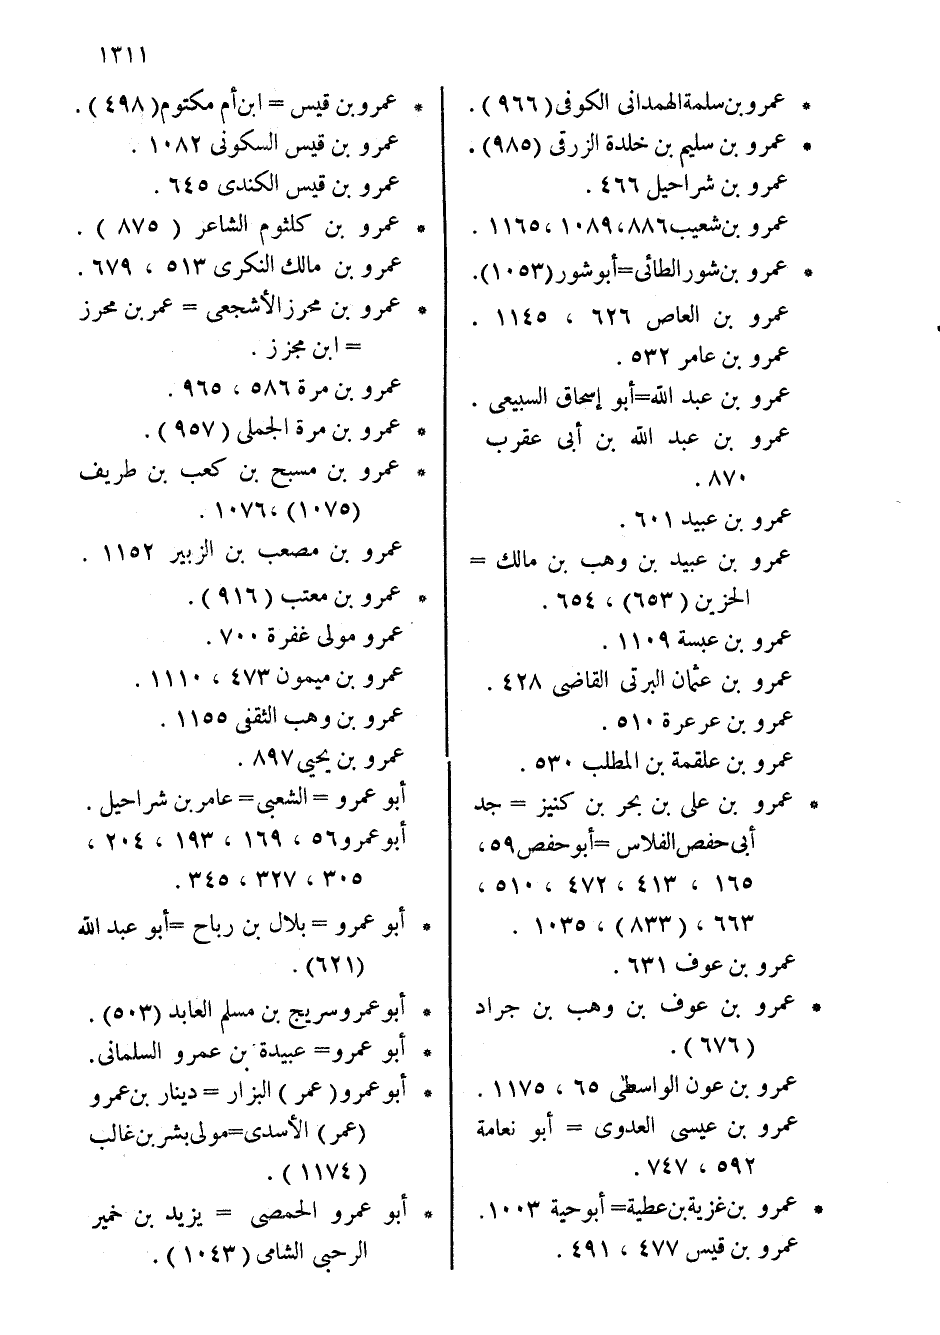 ١٣١١
* عمرو بن سلمة الهمدانى الكوفى (٩٦٦) .
* عمرو بن سليم بن خلدة الزرقى (٩٨٥) .
عمرو بن شراحيل ٤٦٦ .
عمرو بن شعيب ٨٨٦ ، ١٠٨٩ ، ١١٦٥ .
* عمرو بن شور الطائى = أبو شور (١٠٥٣) .
عمرو بن العاص ٦٢٦ ، ١١٤٥ .
عمرو بن عامر ٥٣٢ .
عمرو بن عبد الله = أبو إسحاق السبيعى .
عمرو بن عبد الله بن أبى عقرب
٨٧٠ .
عمرو بن عبيد ٦٠١ .
عمرو بن عبيد بن وهب بن مالك =
الحزين (٦٥٣) ، ٦٥٤ .
عمرو بن عبسة ١١٠٩ .
عمرو بن عثمان البرتى القاضى ٤٢٨ .
عمرو بن عرعرة ٥١٠ .
عمرو بن علقمة بن المطلب ٥٣٠ .
* عمرو بن على بن بحر بن كنيز = جد
أبى حفص الفلاس = أبو حفص ٥٩ ،
١٦٥ ، ٤١٣ ، ٤٧٢ ، ٥١٠ ،
٦٦٣ ، (٨٣٣) ، ١٠٣٥ .
عمرو بن عوف ٦٣١ .
* عمرو بن عوف بن وهب بن جراد
(٦٧٦) .
عمرو بن عون الواسطى ٦٥ ، ١١٧٥ .
عمرو بن عيسى العدوى = أبو نعامة
٥٩٢ ، ٧٤٧ .
* عمرو بن غزية بن عطية = أبو حية ١٠٠٣ .
عمرو بن قيس ٤٧٧ ، ٤٩١ .
* عمرو بن قيس = ابن أم مكتوم (٤٩٨) .
عمرو بن قيس السكونى ١٠٨٢ .
عمرو بن قيس الكندى ٦٤٥ .
* عمرو بن كلثوم الشاعر (٨٧٥) .
عمرو بن مالك النكرى ٥١٣ ، ٦٧٩ .
* عمرو بن محرز الأشجعى = عمر بن محرز
= ابن مجزز .
عمرو بن مرة ٥٨٦ ، ٩٦٥ .
* عمرو بن مرة الجملى (٩٥٧) .
* عمرو بن مسبح بن كعب بن طريف
(١٠٧٥) ، ١٠٧٦ .
عمرو بن مصعب بن الزبير ١١٥٢ .
* عمرو بن معتب (٩١٦) .
عمرو مولى غفرة ٧٠٠ .
عمرو بن ميمون ٤٧٣ ، ١١١٠ .
عمرو بن وهب الثقفى ١١٥٥ .
عمرو بن يحيى ٨٩٧ .
أبو عمرو = الشعبى = عامر بن شراحيل .
أبو عمرو ٥٦ ، ١٦٩ ، ١٩٣ ، ٢٠٤ ،
٣٠٥ ، ٣٢٧ ، ٣٤٥ .
* أبو عمرو = بلال بن رباح = أبو عبد الله
(٦٢١) .
* أبو عمرو سريج بن مسلم العابد (٥٠٣) .
* أبو عمرو = عبيدة بن عمرو السلمانى .
* أبو عمرو (عمر) البزار = دينار بن عمرو
(عمر) الأسدى = مولى بشر بن غالب
(١١٧٤) .
* أبو عمرو الحمصى = يزيد بن خمير
الرحبى الشامى (١٠٤٣) .